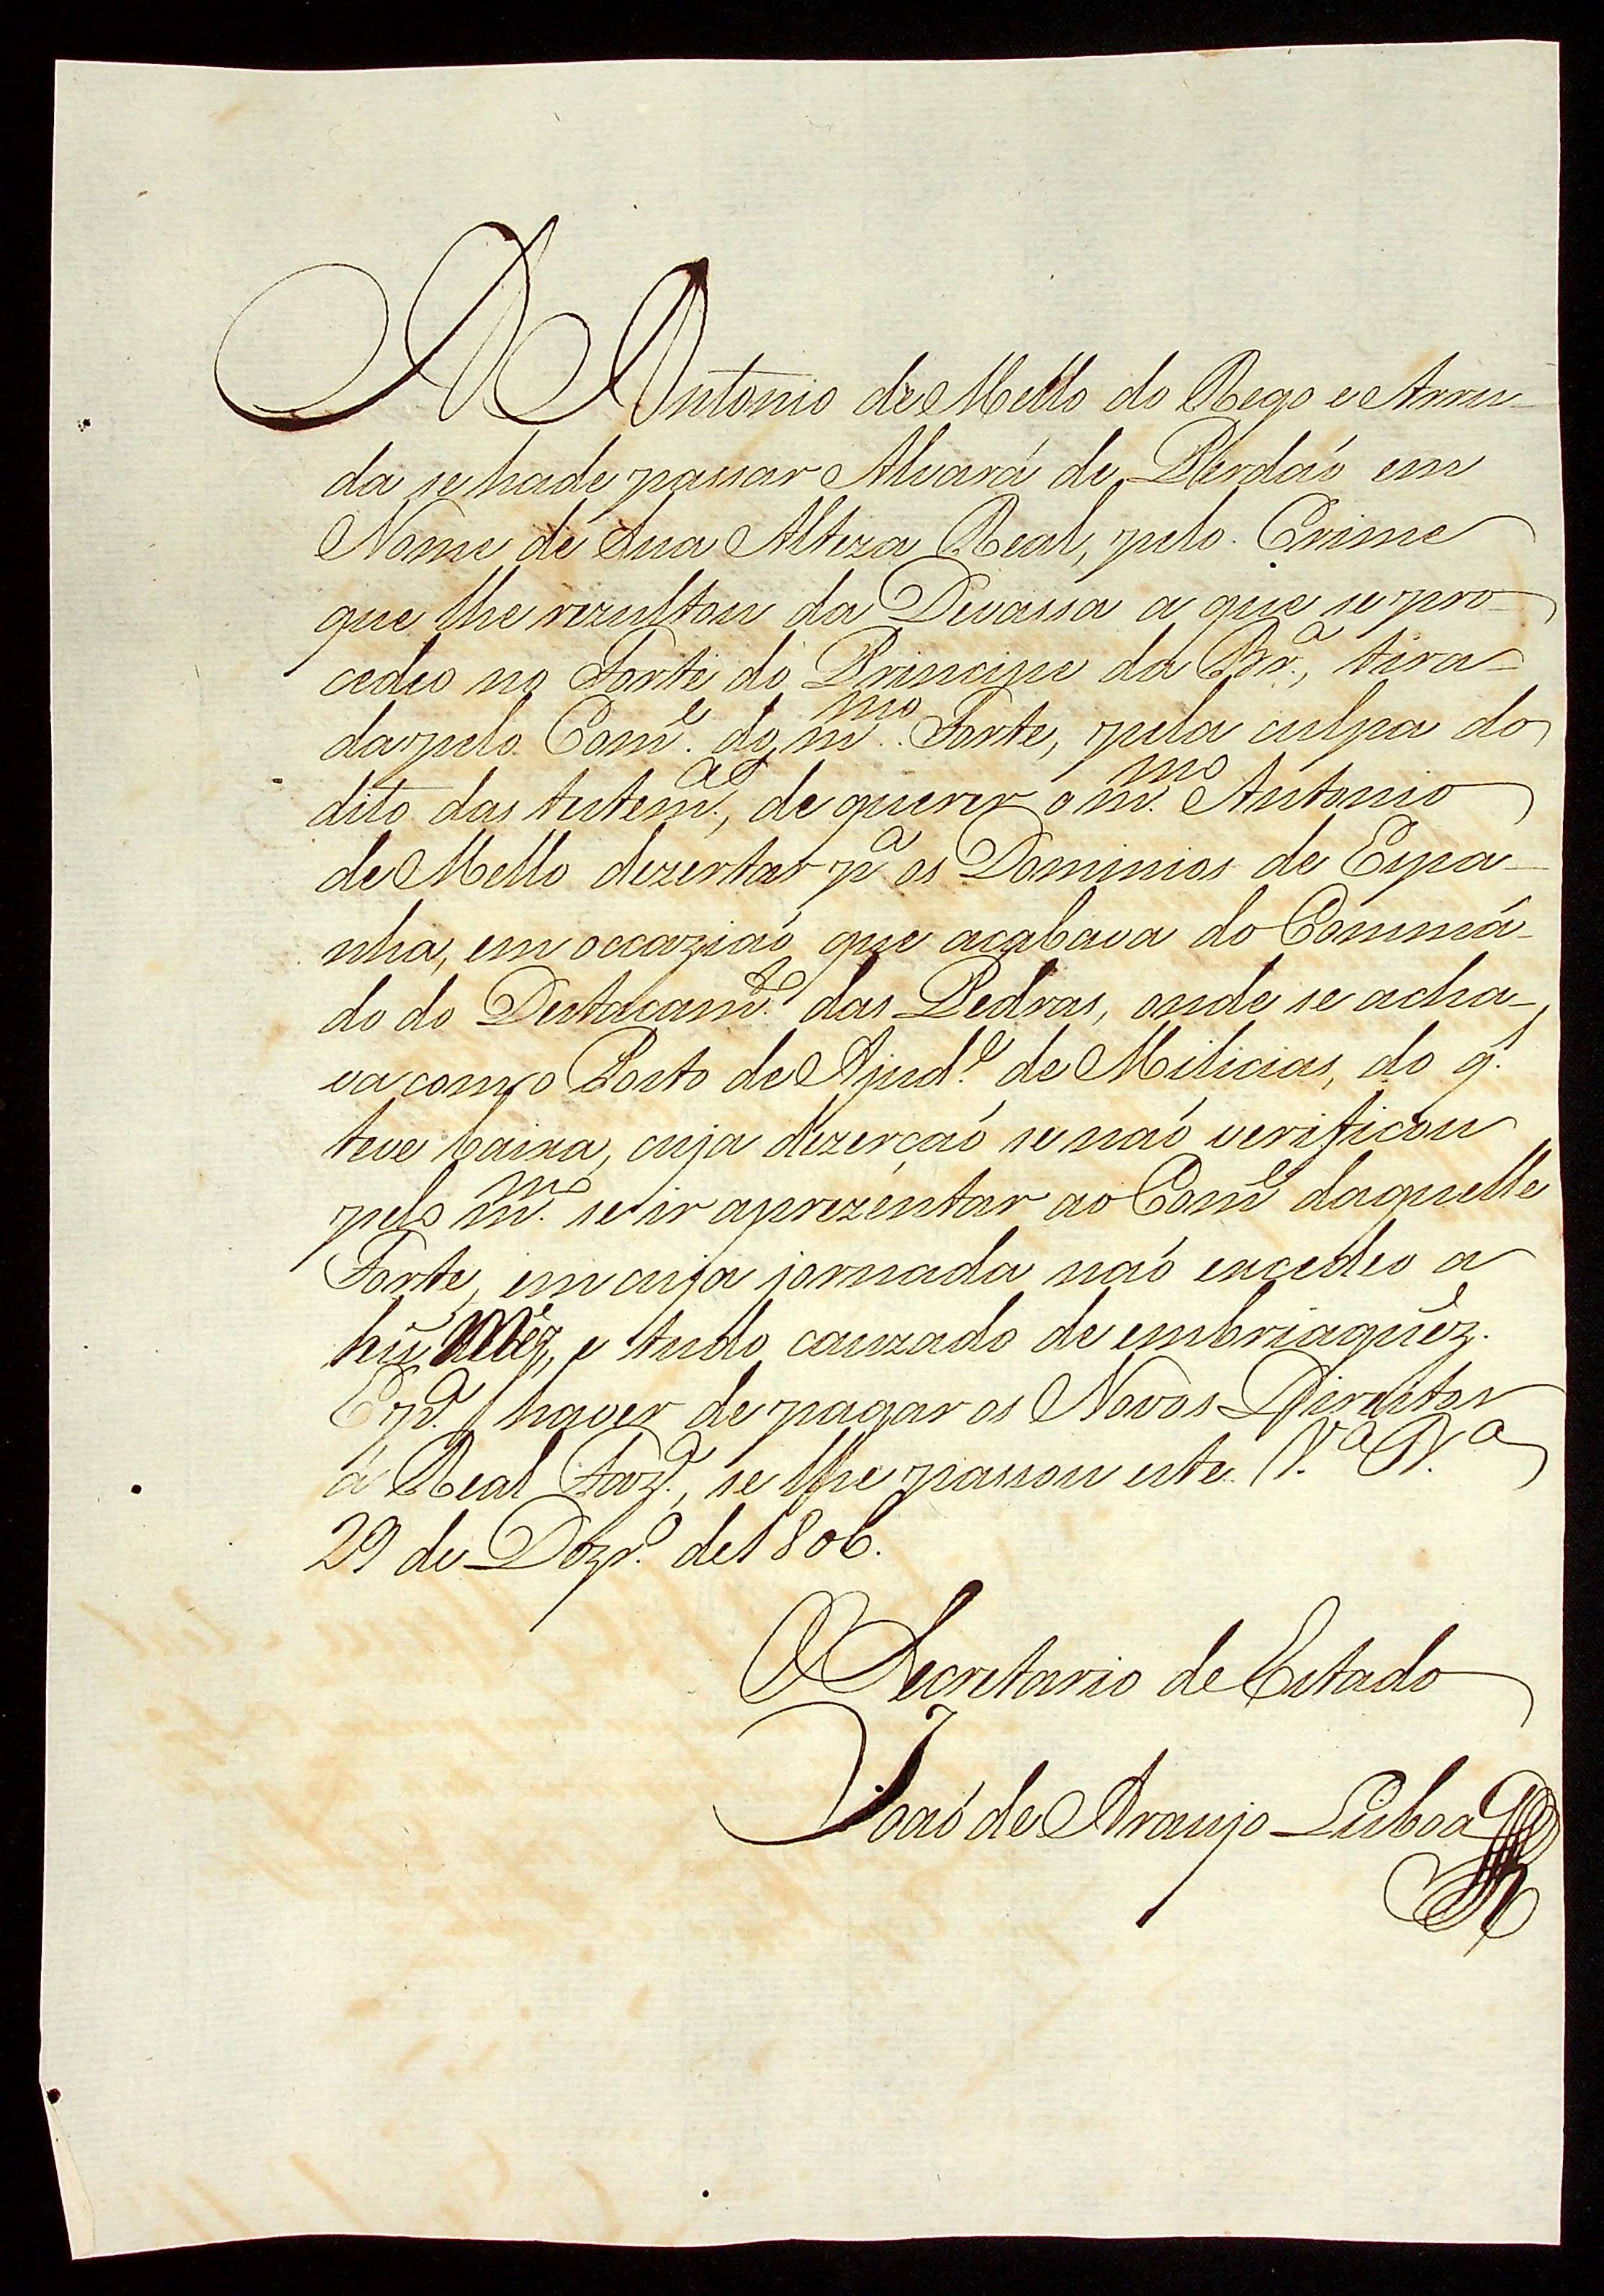 A Antonio de Mello do Rego e Arru-
da se hade passar Alvará de Perdaó em
Nome de Sua Alteza Real, pelo Crime
que lhe rezultou da Devassa a que se pro-
cedeo no Forte do Principe da Br.ª, tira-
da pelo Com.e do m.mo Forte, pela culpa do
dito das tutem.as, de querer o m.mo Antonio
de Mello dezertar p.ª os Dominios de Espa-
nha, em occaziaó que acabava do Commá-
do do Destacam.to das Pedras, onde se acha-
va com o Posto de Ajud.e de Milicias, do q.
teve baixa, cuja dezerçaó se naó verificou
pelo m.mo se ir aprezentar ao Com.e daquelle
Forte, em cuja jornada naó excedeo a
hũ Mêz, e tudo cauzado de embriaguêz.
E p.ª haver de pagar os Novos Direitos
á Real Faz.ª, se lhe passou este. V.ª B.ª
29 de Dezr.o de 1806.
O Secretario de Estado
Joaó de Araujo Lisboa